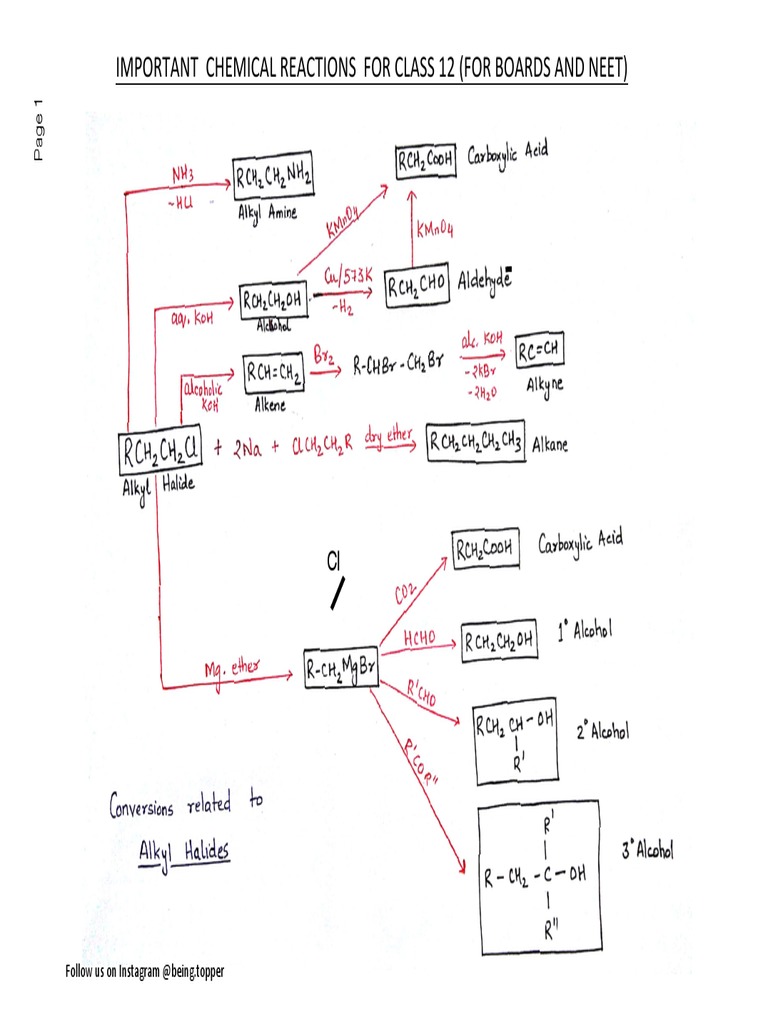 IMPORTANT CHEMICAL REACTIONS FOR CLASS 12 (FOR BOARDS AND NEET)
Page 1
NH3
~HCl
RCH2CH2NH2
Alkyl Amine
RCH2COOH Carboxylic Acid
KMnO4
KMnO4
aq. KOH
RCH2CH2OH
Alcohol
Cu/573K
-H2
RCH2CHO Aldehyde
alcoholic
KOH
RCH=CH2
Alkene
Br2
R-CHBr-CH2Br
alc. KOH
-2KBr
-2H2O
RC=CH
Alkyne
RCH2CH2Cl + 2Na + ClCH2CH2R dry ether RCH2CH2CH2CH3 Alkane
Alkyl Halide
Cl
Mg. ether
R-CH2MgBr
CO2
RCH2COOH Carboxylic Acid
HCHO
RCH2CH2OH 1° Alcohol
R'CHO
RCH2CH-OH
R'
2° Alcohol
R'COR"
R'
R-CH2-C-OH
R"
3° Alcohol
Conversions related to
Alkyl Halides
Follow us on Instagram @being.topper